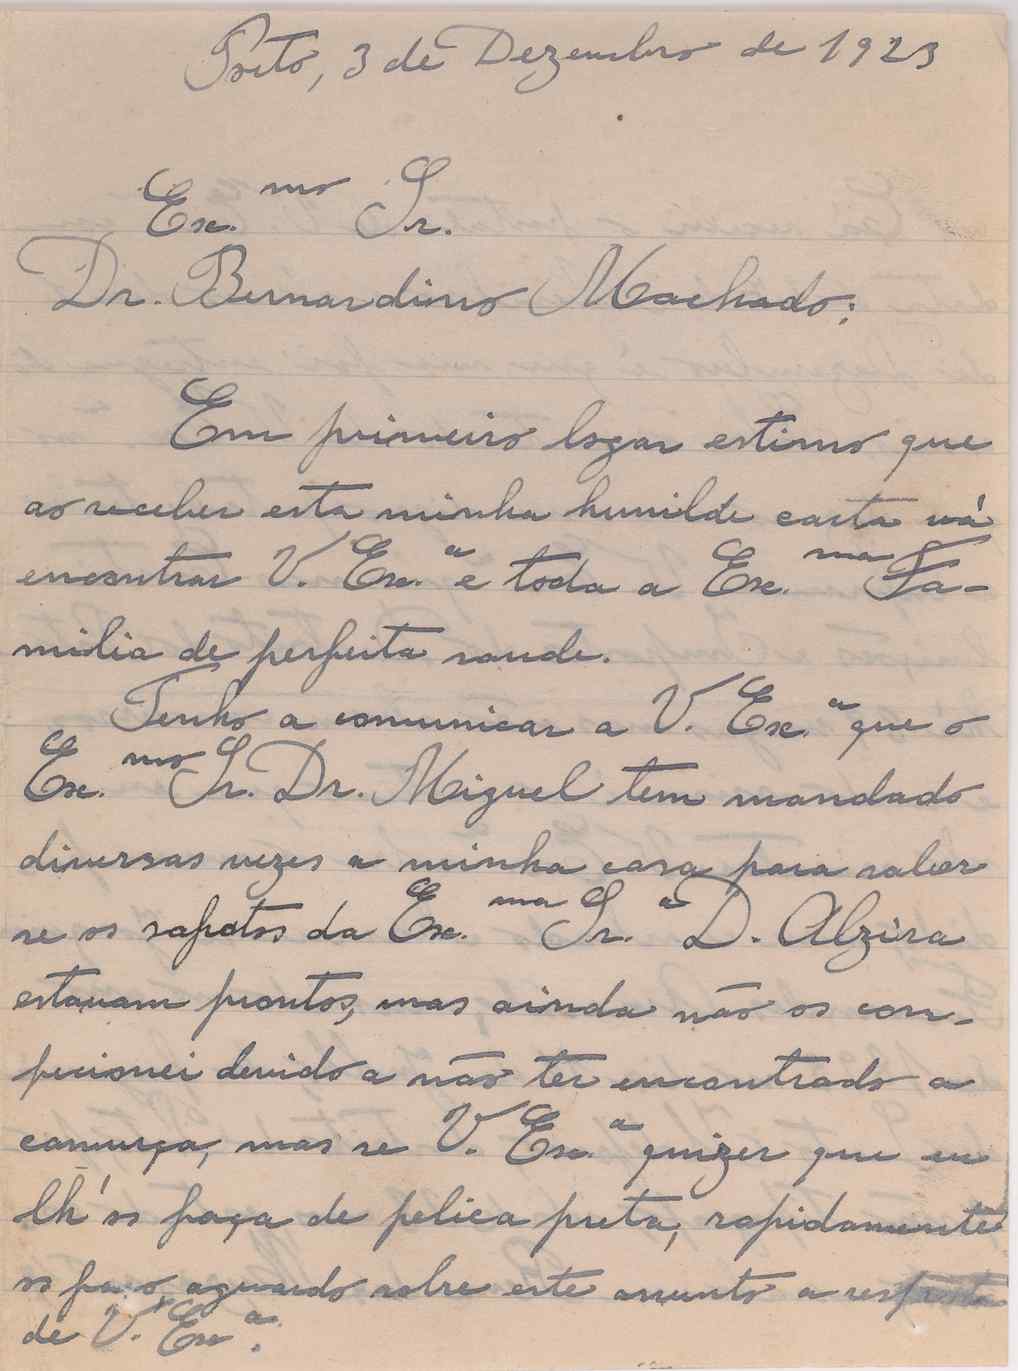 Porto, 3 de Dezembro de 1923
Ex.mo Sr.
Dr. Bernardino Machado:
Em primeiro logar estimo que
ao receber esta minha humilde carta vá
encontrar V. Ex.a e toda a Ex.ma Fa-
milia de perfeita saude.
Tenho a comunicar a V. Ex.a que o
Ex.mo Sr. Dr. Miguel tem mandado
diversas vezes a minha casa para saber
se os sapatos da Ex.ma Sr.a D. Alzira
estavam prontos, mas ainda não os con-
fecionei devido a não ter encontrado a
camurça, mas se V. Ex.a quizer que eu
lh'os faça de pelica preta, rapidamente
os faço, aguardo sobre este assunto a resposta
de V. Ex.a.